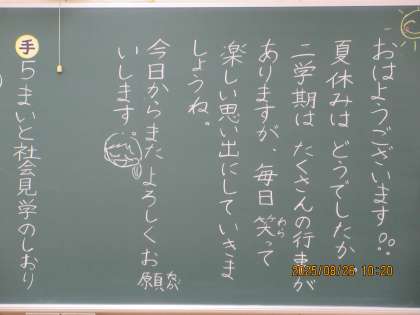 おはようございます。
夏休みは どうでしたか。
二学期は たくさんの行事が
ありますが、毎日 笑って
わら
楽しい思い出にしていきま
しょうね。
今日からまた よろしくお願
ねが
いします。
手 5まいと社会見学のしおり
2025/08/26 10:20